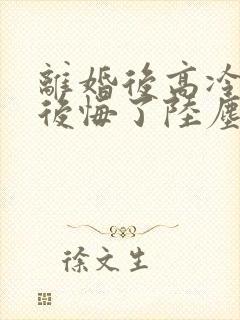 離婚後高冷
後悔了陸塵
徐文生